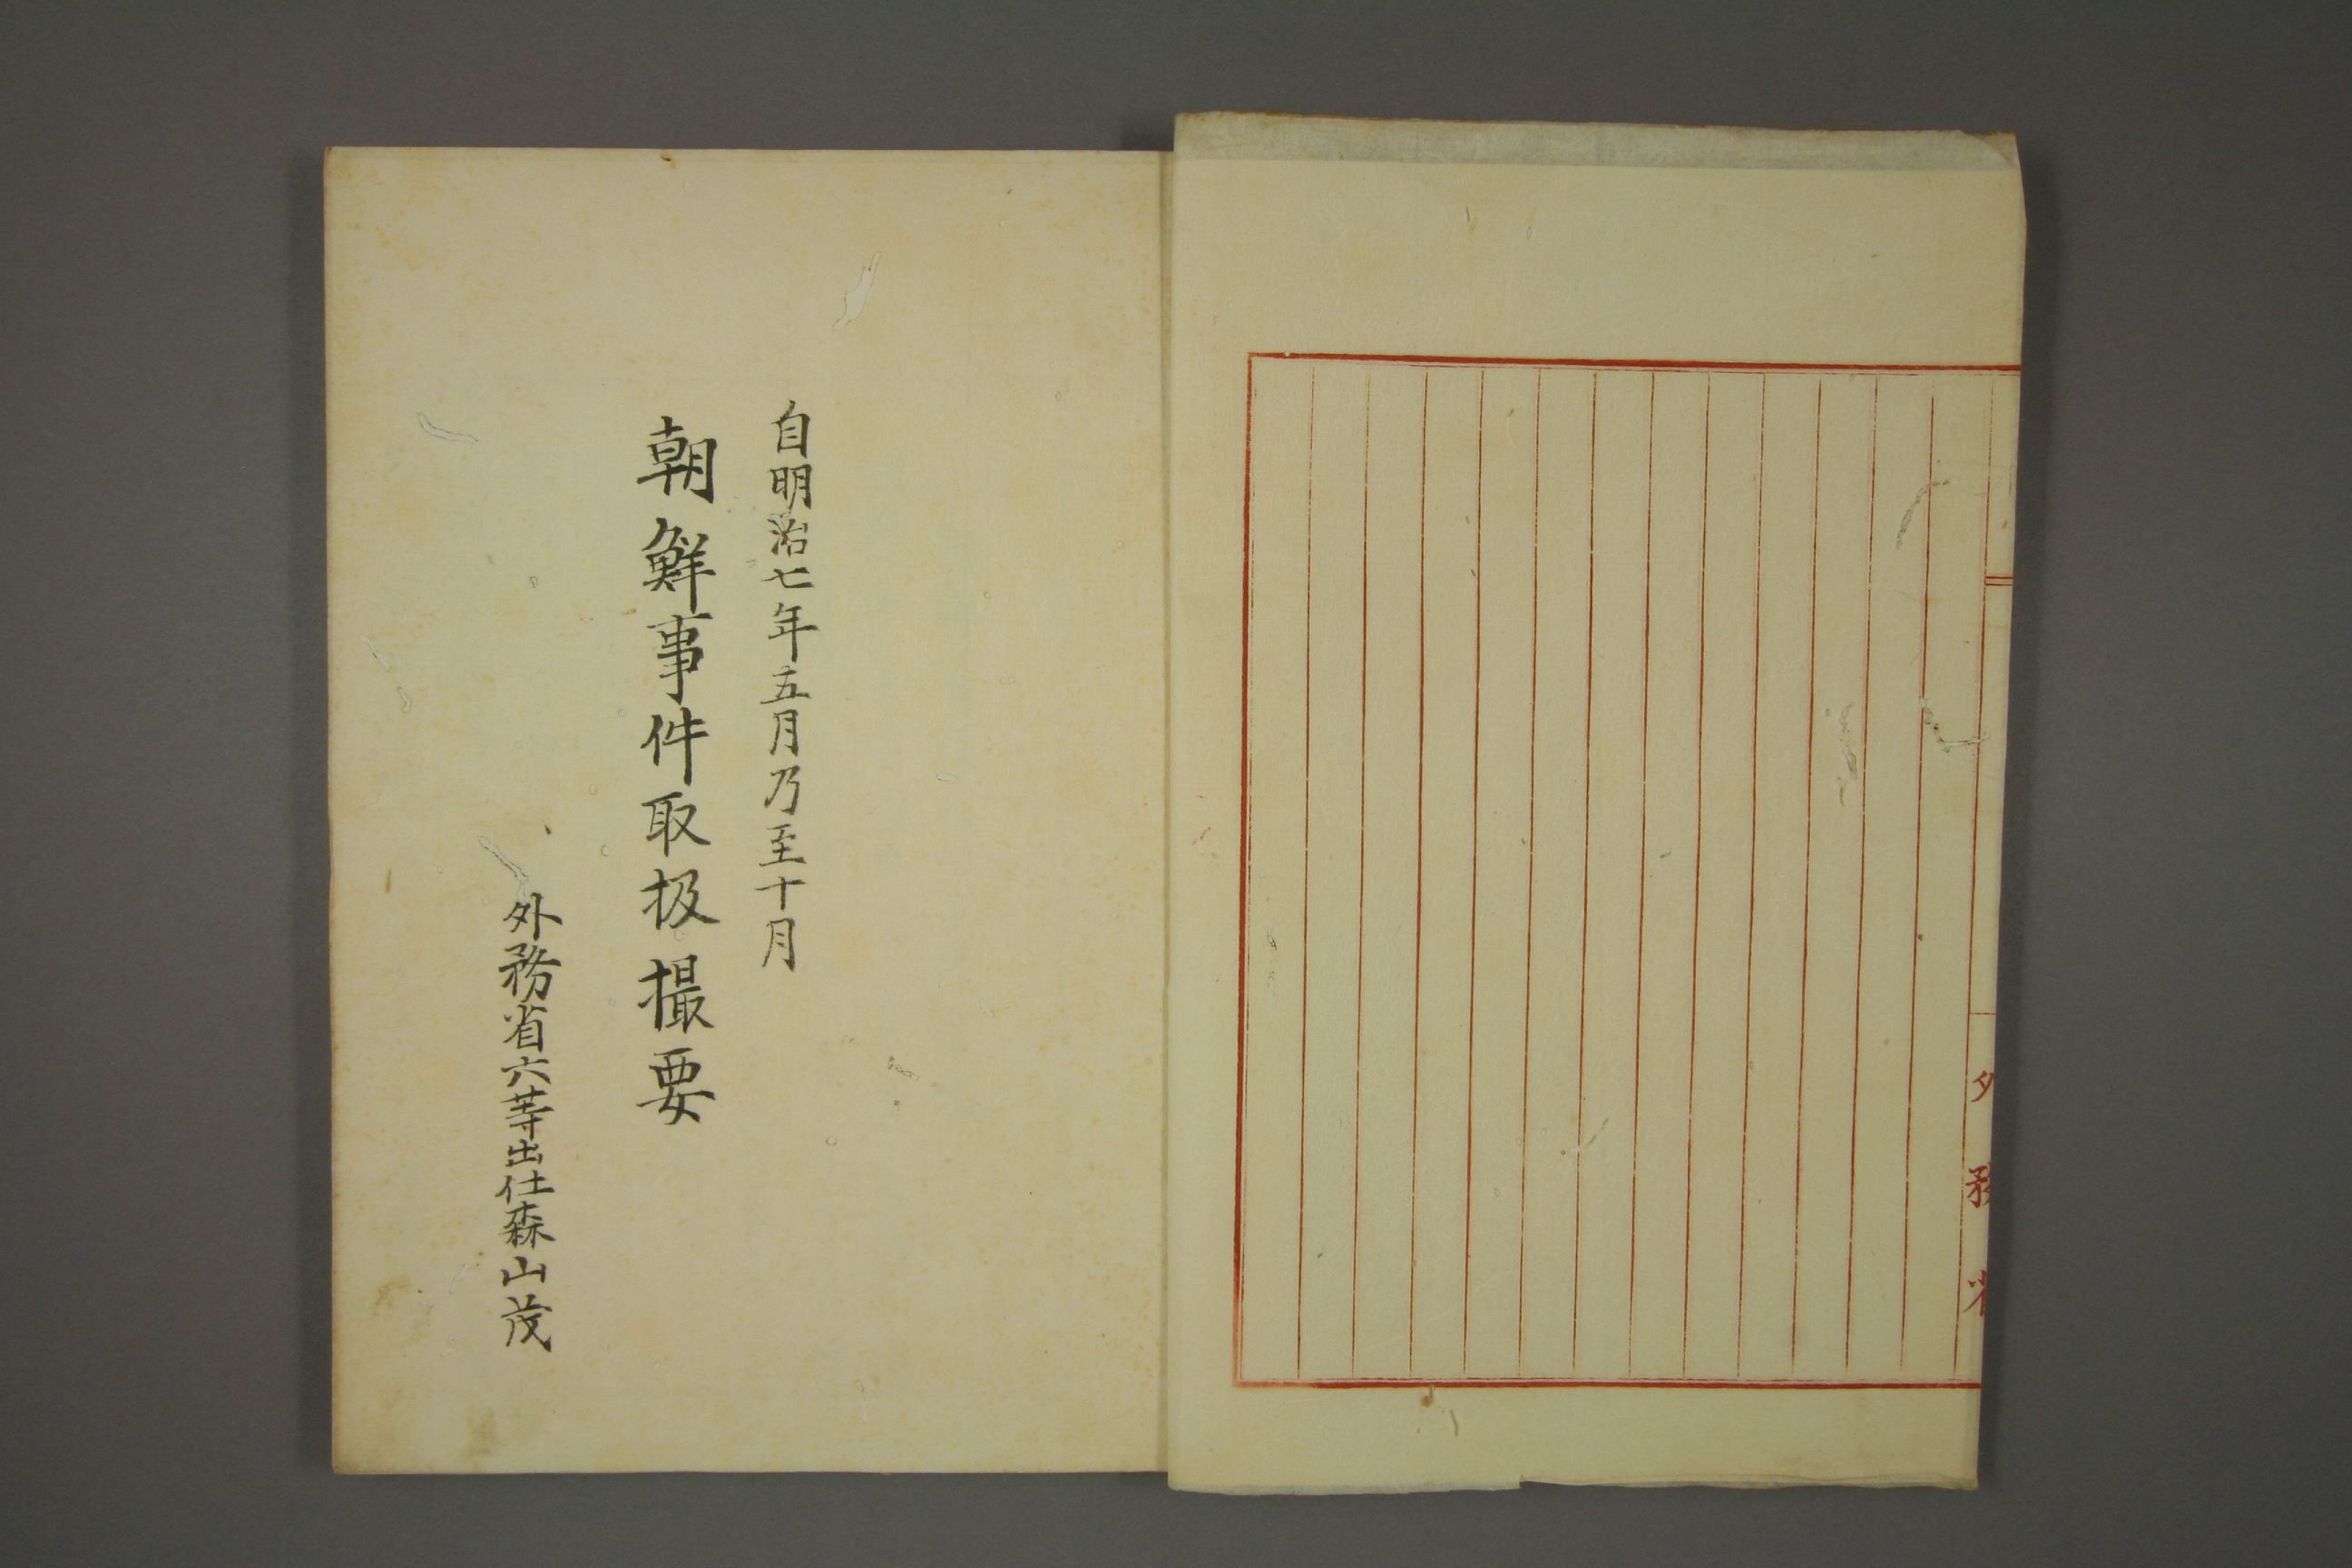 外務省
自明治七年五月乃至十月
朝鮮事件取扱撮要
外務省六等出仕森山茂